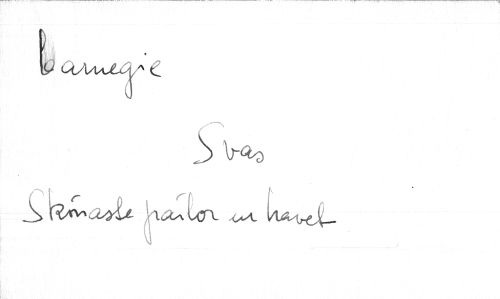 Carnegie
Svas
Skönaste pärlor ur havet